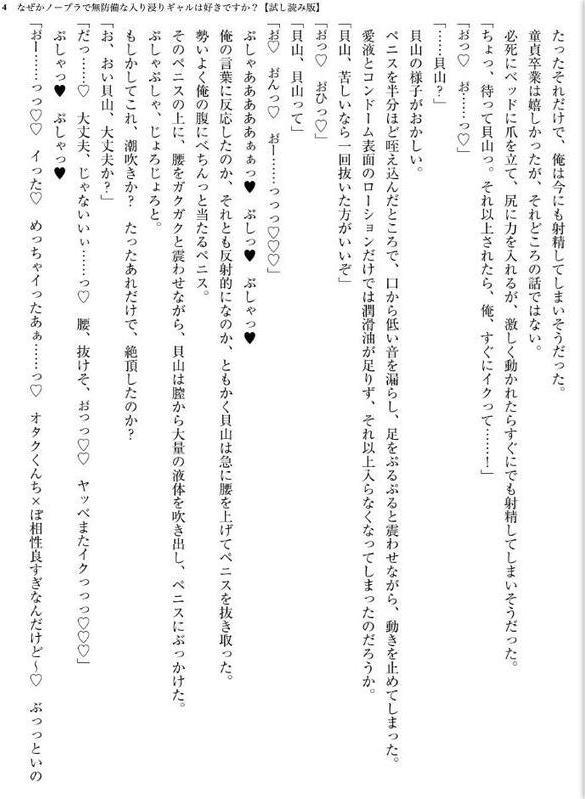 4 なぜかノーブラで無防備な入り浸りギャルは好きですか?【試し読み版】
たったそれだけで、俺は今にも射精してしまいそうだった。
童貞卒業は嬉しかったが、それどころの話ではない。
必死にベッドに爪を立て、尻に力を入れるが、激しく動かれたらすぐにでも射精してしまいそうだった。
「ちょっ、待って貝山っ。それ以上されたら、俺、すぐにイクって……!」
「おっ♡ お……っ♡」
「……貝山?」
貝山の様子がおかしい。
ペニスを半分ほど咥え込んだところで、口から低い音を漏らし、足をぷるぷると震わせながら、動きを止めてしまった。
愛液とコンドーム表面のローションだけでは潤滑油が足りず、それ以上入らなくなってしまったのだろうか。
「貝山、苦しいなら一回抜いた方がいいぞ」
「おっ♡ おひっ♡」
「貝山、貝山って」
「お♡ おんっ♡ おー……っっっ♡♡♡」
ぷしゃあああああぁぁっ♥ ぷしっ♥ ぷしゃっ♥
俺の言葉に反応したのか、それとも反射的になのか、ともかく貝山は急に腰を上げてペニスを抜き取った。
勢いよく俺の腹にべちんっと当たるペニス。
そのペニスの上に、腰をガクガクと震わせながら、貝山は膣から大量の液体を吹き出し、ペニスにぶっかけた。
ぷしゃぷしゃ、じょろじょろと。
もしかしてこれ、潮吹きか? たったあれだけで、絶頂したのか?
「お、おい貝山、大丈夫か?」
「だっ……♡ 大丈夫、じゃないいぃ……っ♡ 腰、抜けそ、おっっ♡♡ ヤッベまたイクっっっ♡♡♡」
ぷしゃっ♥ ぷしゃっ♥
「おー……っっ♡♡ イった♡ めっちゃイったあぁ……っ♡ オタクくんち×ぽ相性良すぎなんだけど〜♡ ぶっっといの